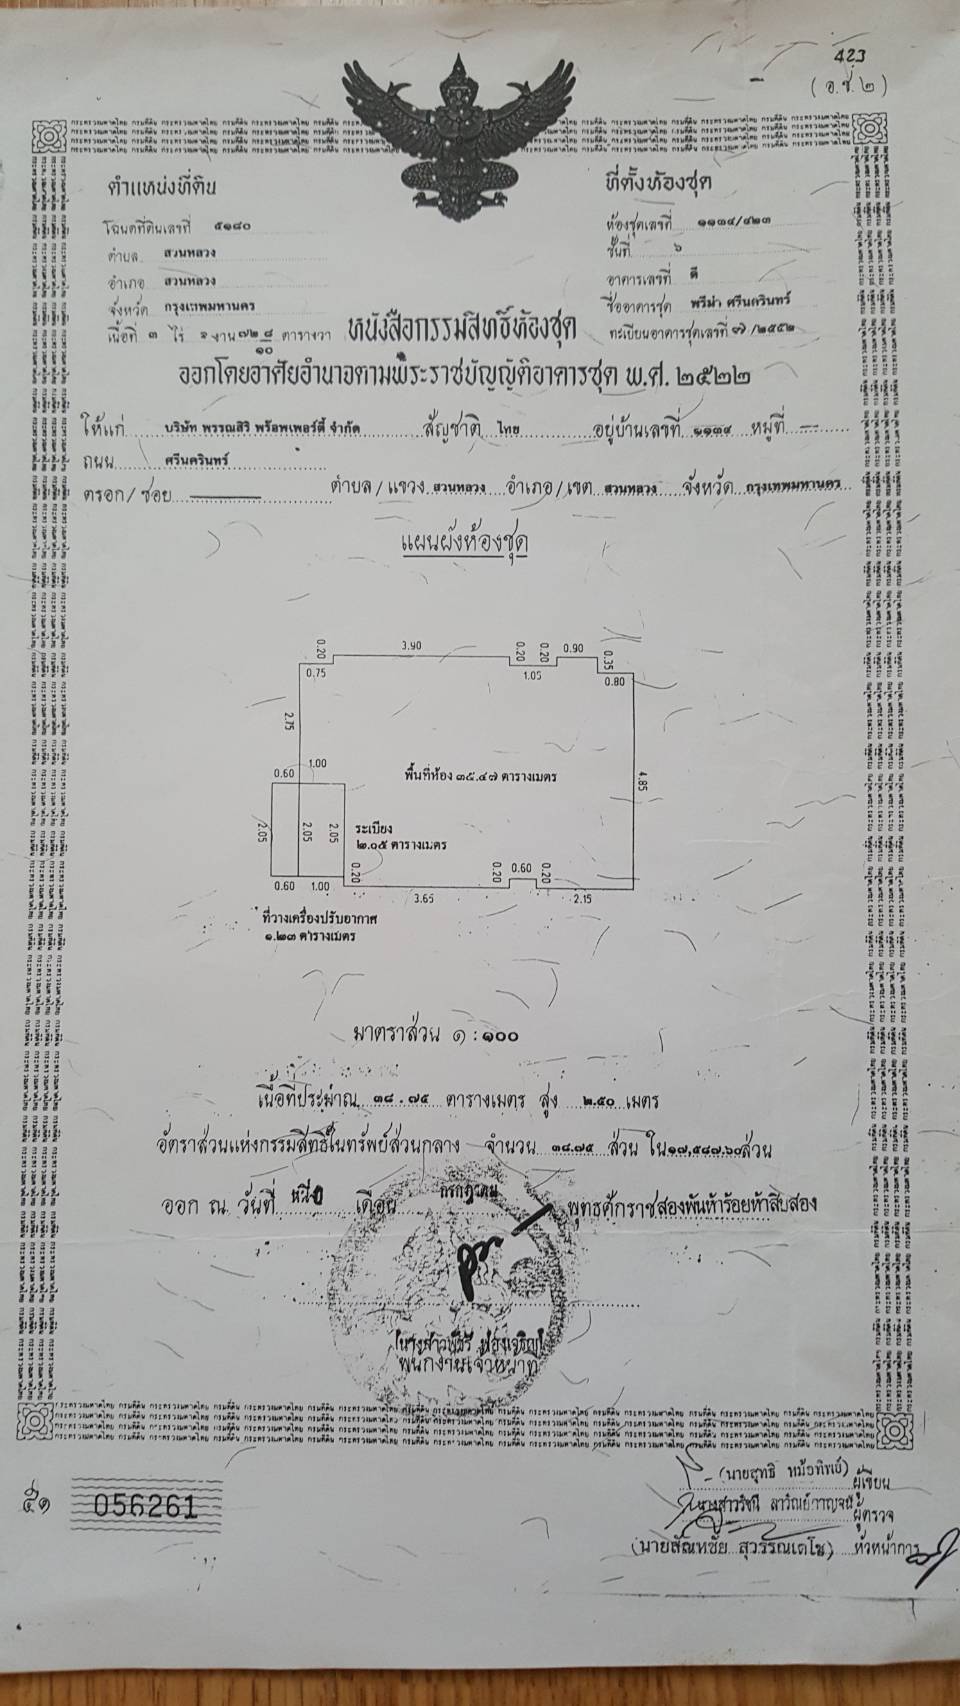 423
(อ.ช.๒)
ตำแหน่งที่ดิน
ที่ตั้งห้องชุด
โฉนดที่ดินเลขที่ ๕๑๘๐
ห้องชุดเลขที่ ๑๑๓๙/๔๒๓
ตำบล สวนหลวง
ชั้นที่ ๖
อำเภอ สวนหลวง
อาคารเลขที่ ดี
จังหวัด กรุงเทพมหานคร
ชื่ออาคารชุด พรีม่า ศรีนครินทร์
เนื้อที่ ๓ ไร่ ๑ งาน ๗๒ ๘/๑๐ ตารางวา
หนังสือกรรมสิทธิ์ห้องชุด
ทะเบียนอาคารชุดเลขที่ ๗/๒๕๕๒
ออกโดยอาศัยอำนาจตามพระราชบัญญัติอาคารชุด พ.ศ. ๒๕๒๒
ให้แก่ บริษัท พรรณสิริ พร้อพเพอร์ตี้ จำกัด สัญชาติ ไทย อยู่บ้านเลขที่ ๑๑๓๙ หมู่ที่ —
ถนน ศรีนครินทร์
ตรอก/ซอย — ตำบล/แขวง สวนหลวง อำเภอ/เขต สวนหลวง จังหวัด กรุงเทพมหานคร
แผนผังห้องชุด
0.20 3.90 0.20 0.20 0.90 0.35
0.75 1.05 0.80
2.75
0.60 1.00
พื้นที่ห้อง ๓๕.๔๗ ตารางเมตร
4.85
2.05 2.05 2.05
ระเบียง
๒.๐๕ ตารางเมตร
0.20 0.20 0.60 0.20
0.60 1.00 3.65 2.15
ที่วางเครื่องปรับอากาศ
๑.๒๓ ตารางเมตร
มาตราส่วน ๑ : ๑๐๐
เนื้อที่ประมาณ ๓๘.๗๕ ตารางเมตร สูง ๒.๕๐ เมตร
อัตราส่วนแห่งกรรมสิทธิ์ในทรัพย์ส่วนกลาง จำนวน ๓๘.๗๕ ส่วน ใน ๑๗,๕๘๗.๖๐ ส่วน
ออก ณ วันที่ หนึ่ง เดือน กรกฎาคม พุทธศักราชสองพันห้าร้อยห้าสิบสอง
พนักงานเจ้าหน้าที่
(นายสุทธิ หม้อทิพย์) ผู้เขียน
ผู้ตรวจ
(นายสัณหชัย สุวรรณเตโช) หัวหน้าการ
ส๑ 056261